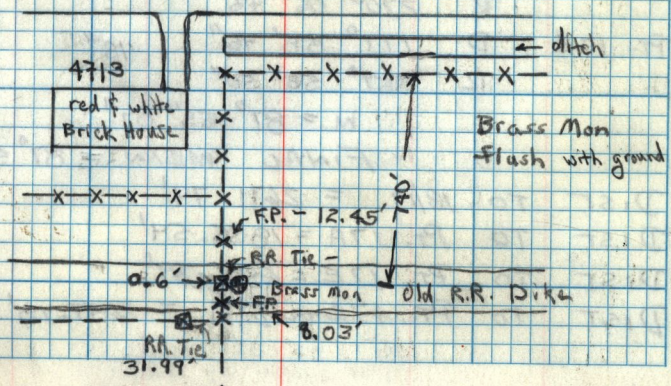 ditch
4713
red & white
Brick House
Brass Mon
flush with ground
740'
F.P. - 12.45'
R.R. Tie -
0.6'
Brass Mon
Old R.R. Dike
F.P.
8.03'
R.R. Tie
31.99'